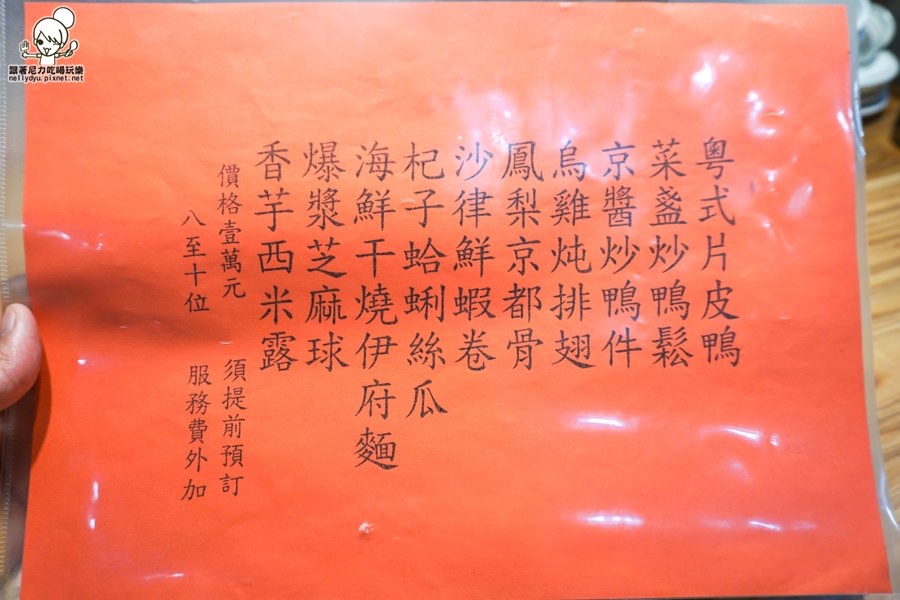 粵式片皮鴨
菜盞炒鴨鬆
京醬炒鴨件
烏雞炖排翅
鳳梨京都骨
沙律鮮蝦卷
杞子蛤蜊絲瓜
海鮮干燒伊府麵
爆漿芝麻球
香芋西米露
價格壹萬元 須提前預訂
八至十位 服務費外加
跟著尼力吃喝玩樂
nellydyu.pixnet.net